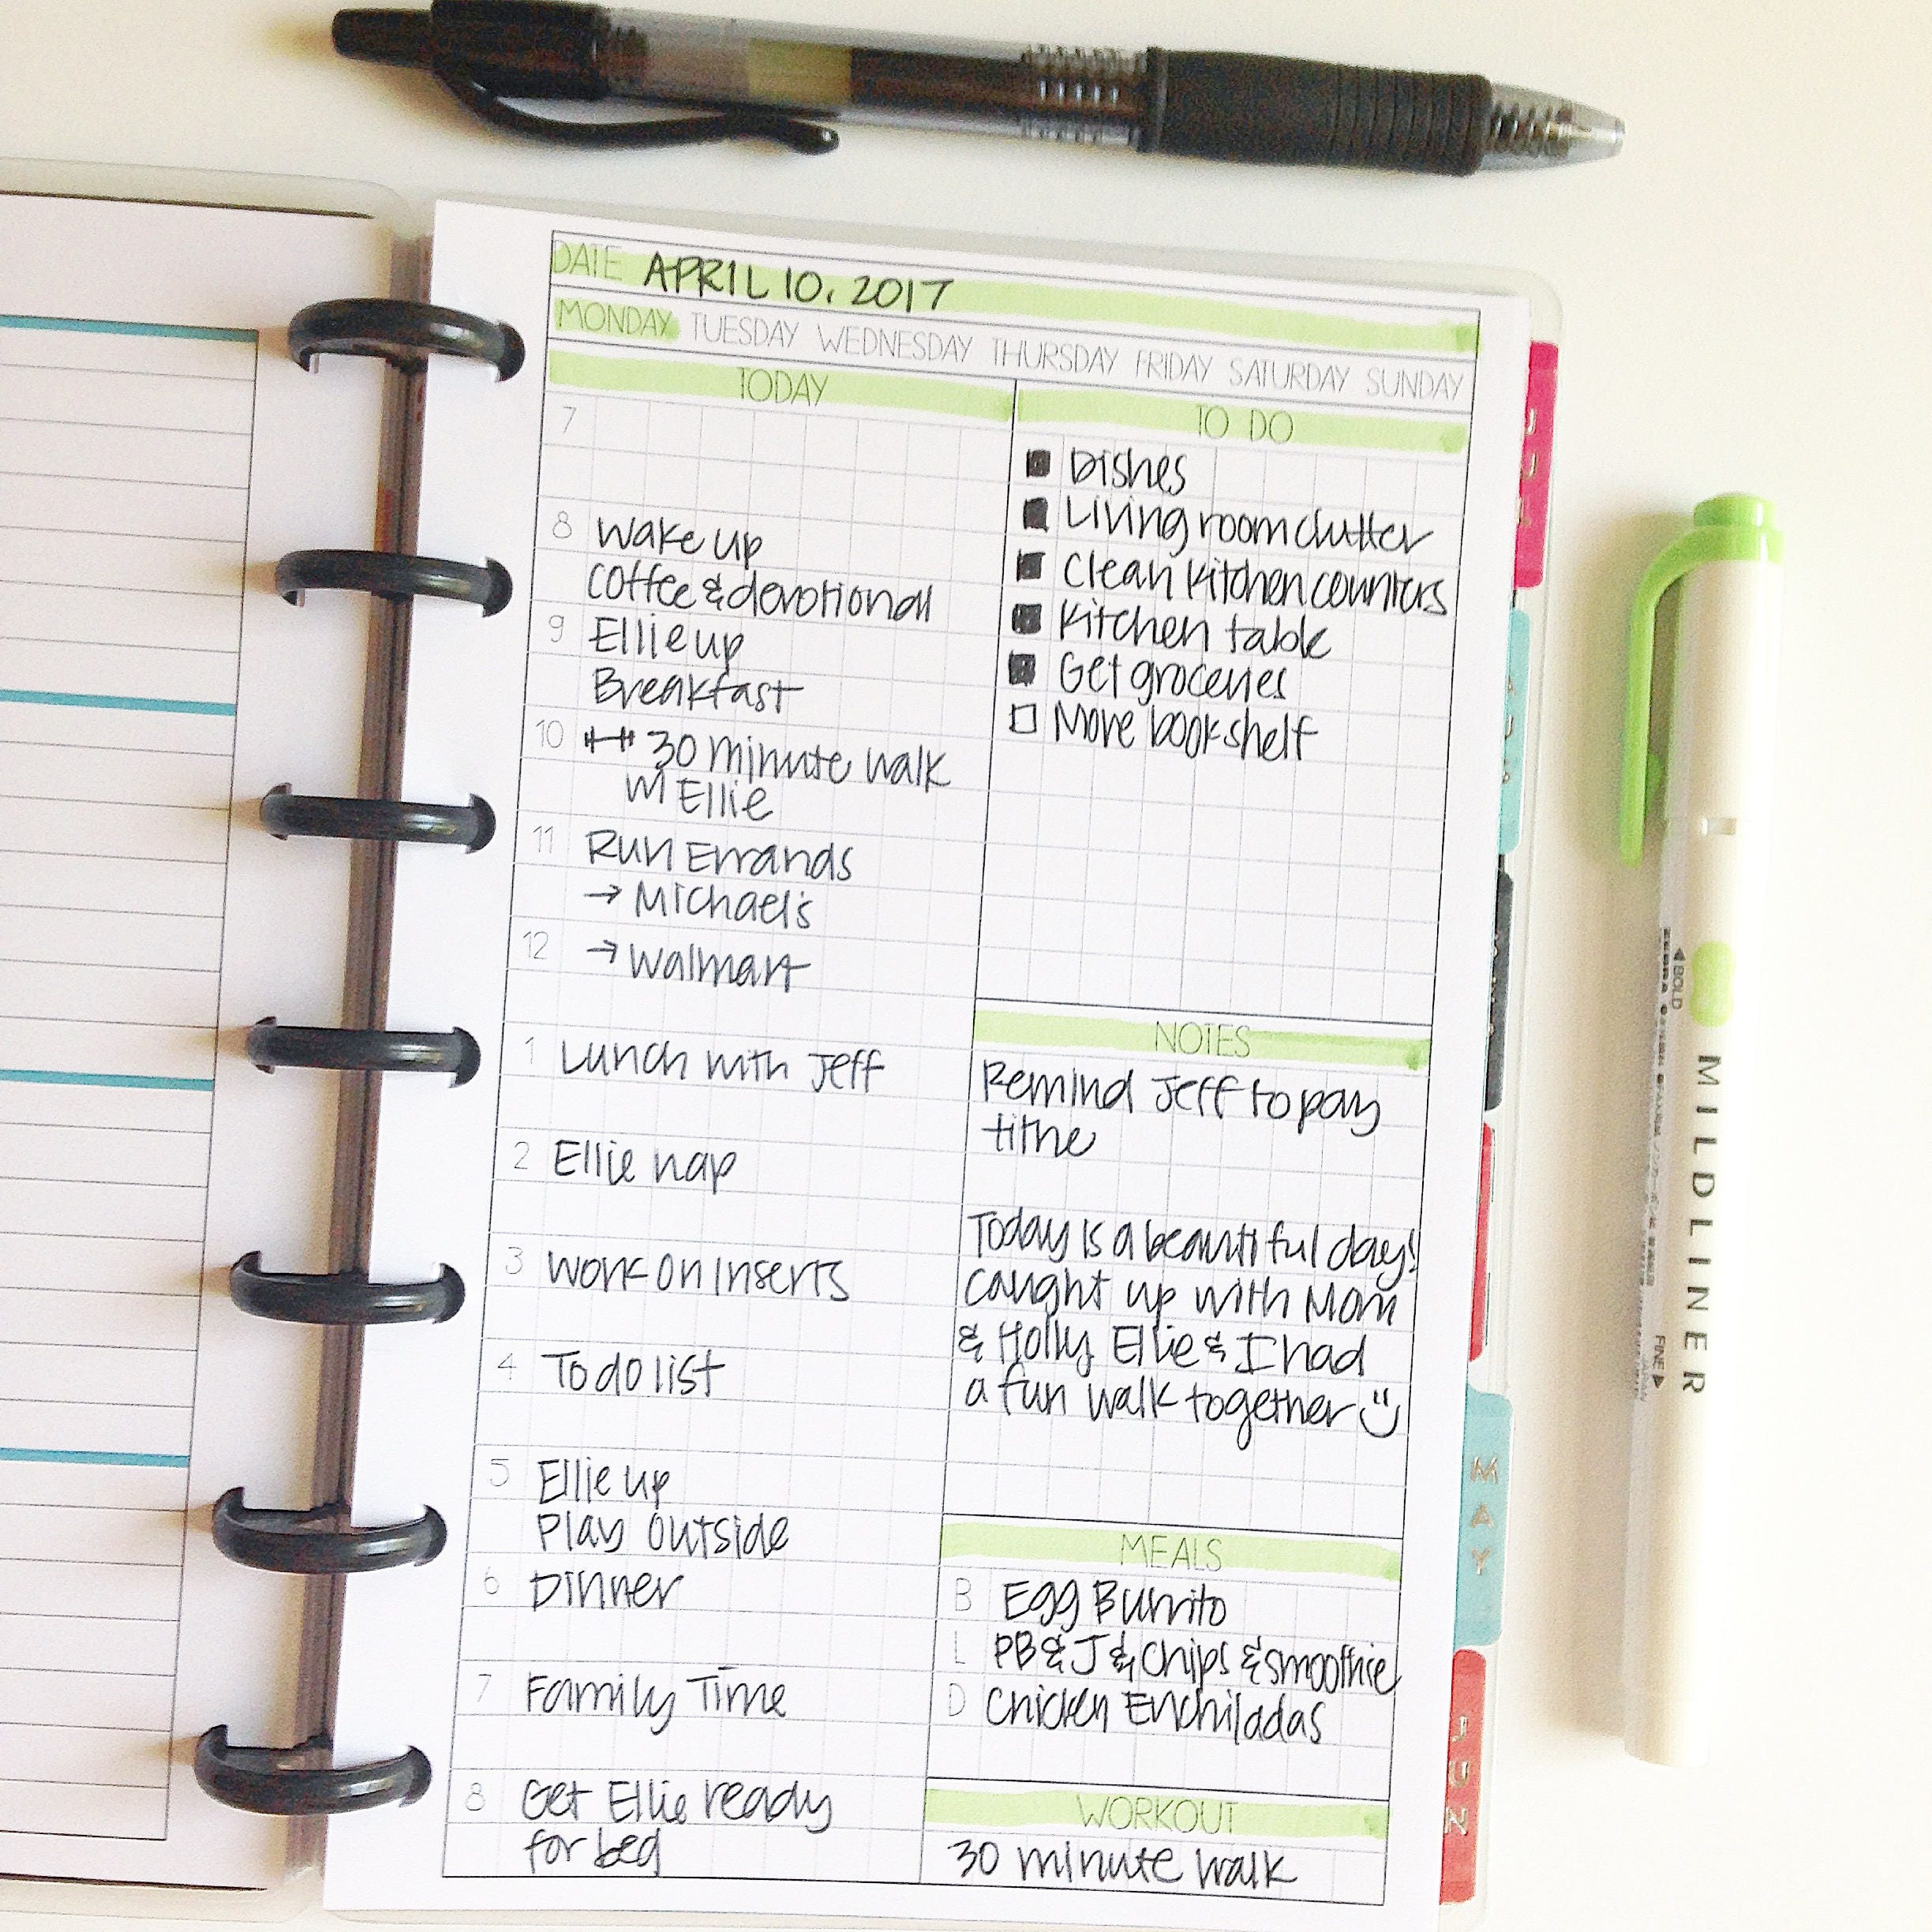 DATE APRIL 10, 2017
MONDAY TUESDAY WEDNESDAY THURSDAY FRIDAY SATURDAY SUNDAY
TODAY
7
8 Wake up
Coffee & devotional
9 Ellie up
Breakfast
10 30 minute walk
w/ Ellie
11 Run Errands
→ Michael's
12 → Walmart
1 Lunch with Jeff
2 Ellie nap
3 Work on Inserts
4 To do list
5 Ellie up
Play outside
6 Dinner
7 Family Time
8 Get Ellie ready
for bed
TO DO
■ Dishes
■ Living room clutter
■ Clean kitchen counters
■ Kitchen table
■ Get groceries
□ Move bookshelf
NOTES
Remind Jeff to pay
tithe
Today is a beautiful day!
Caught up with Mom
& Holly. Ellie & I had
a fun walk together
MEALS
B Egg Burrito
L PB & J & chips & smoothie
D Chicken Enchiladas
WORKOUT
30 minute walk
JUL
AUG
MAY
JUN
BOLD
MILDLINER
FINE